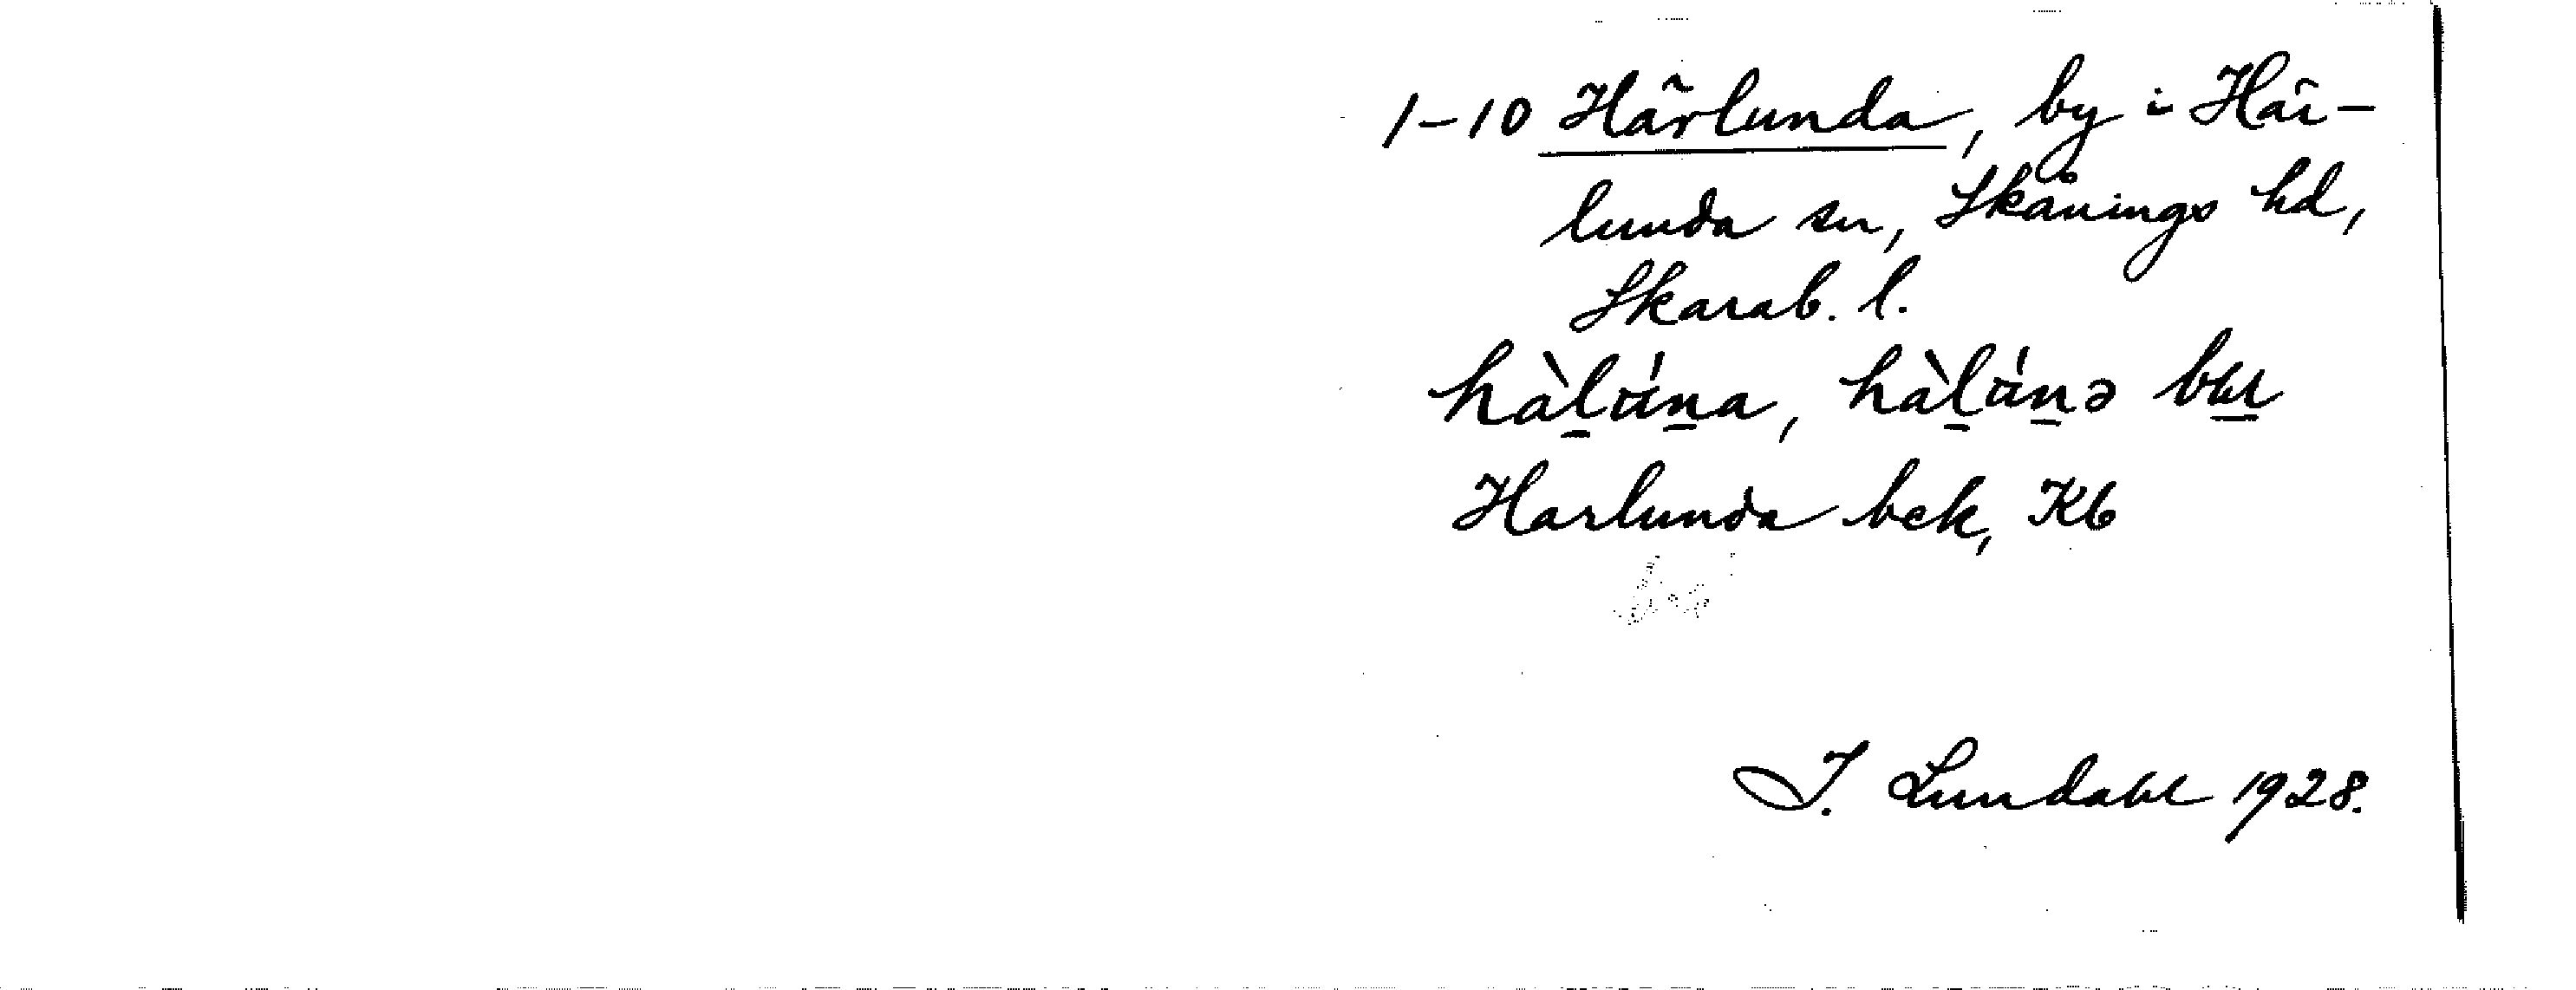 1-10 Härlunda, by i Här-
lunda sn, Skånings hd,
Skarab. l.
hàḻάṉa, hàḻάṉə
Harlunda bek, Kb
I. Lundahl 1928.